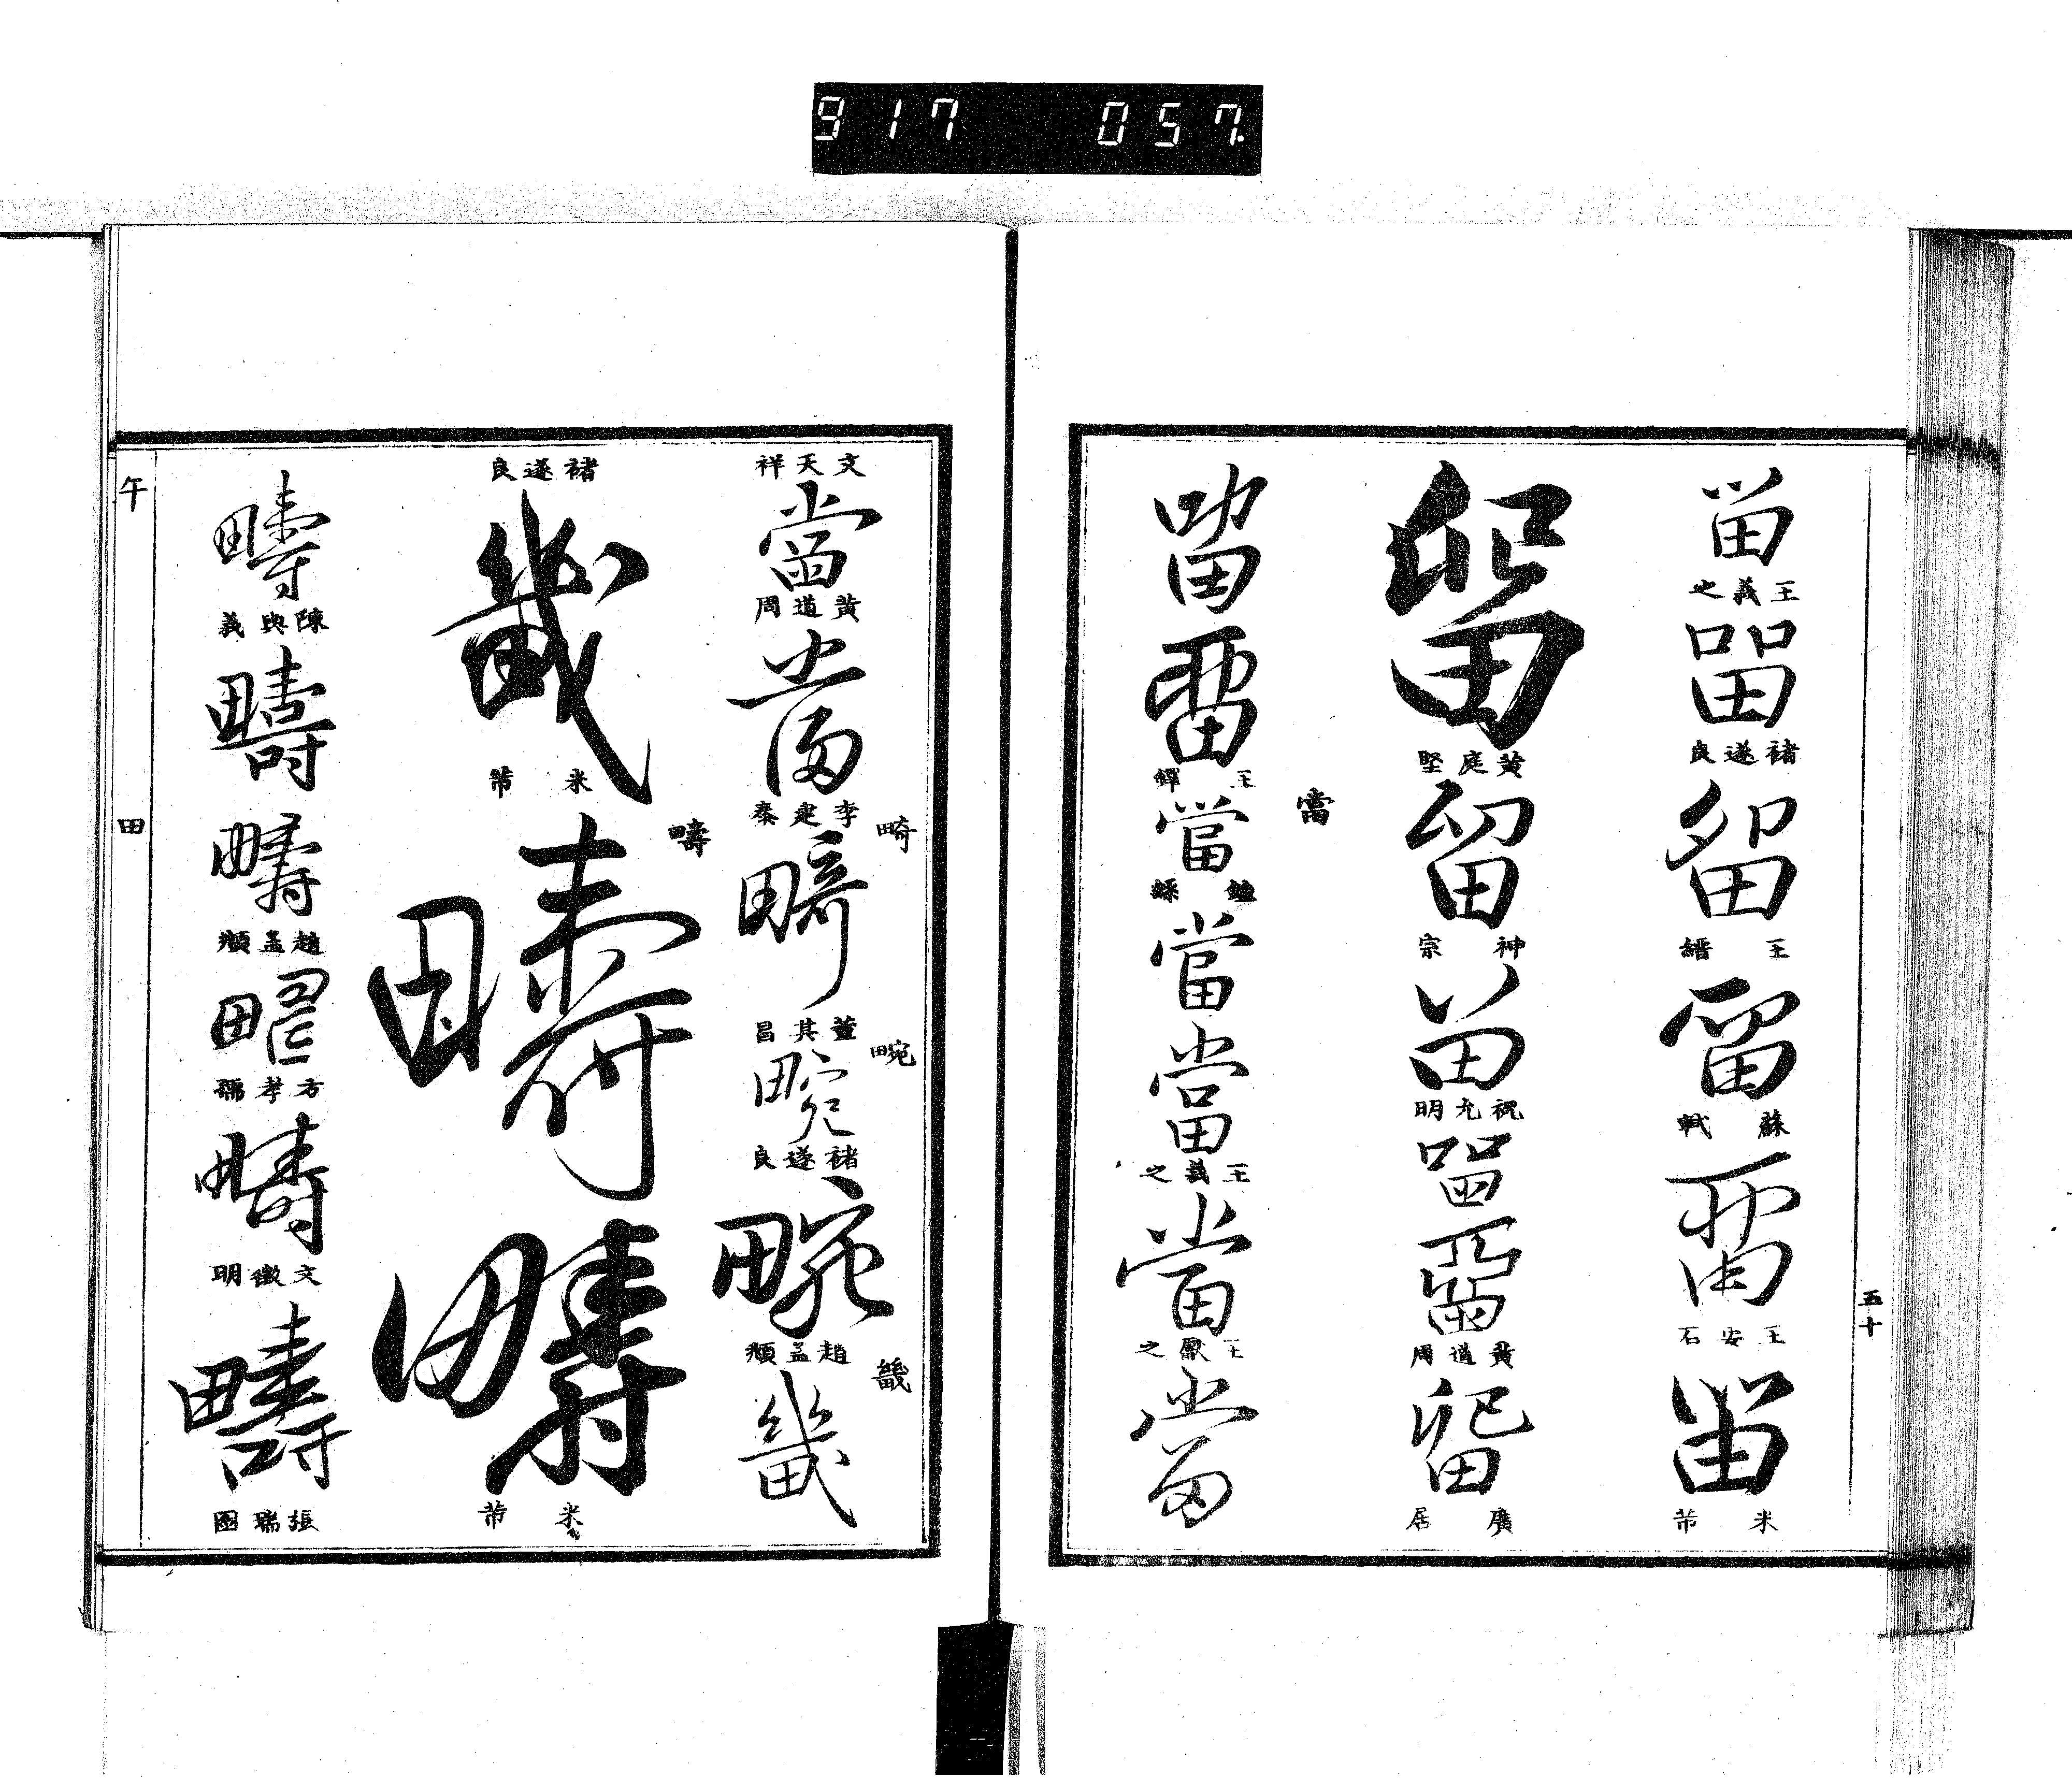 917 057
五十
留
王羲之
留
褚遂良
留
王縉
留
蘇軾
留
王安石
留
米芾
留
黃庭堅
留
神宗
留
祝允明
留
留
黃道周
留
廣居
留
留
當
當
鍾繇
當
當
王羲之
當
王獻之
當
文天祥
當
黃道周
當
李建泰
畸
畸
董其昌
畹
畹
褚遂良
畹
趙孟頫
畿
畿
褚遂良
畿
米芾
疇
疇
疇
米芾
疇
陳與義
疇
疇
趙孟頫
疇
方孝孺
疇
文徵明
疇
張瑞圖
午
田